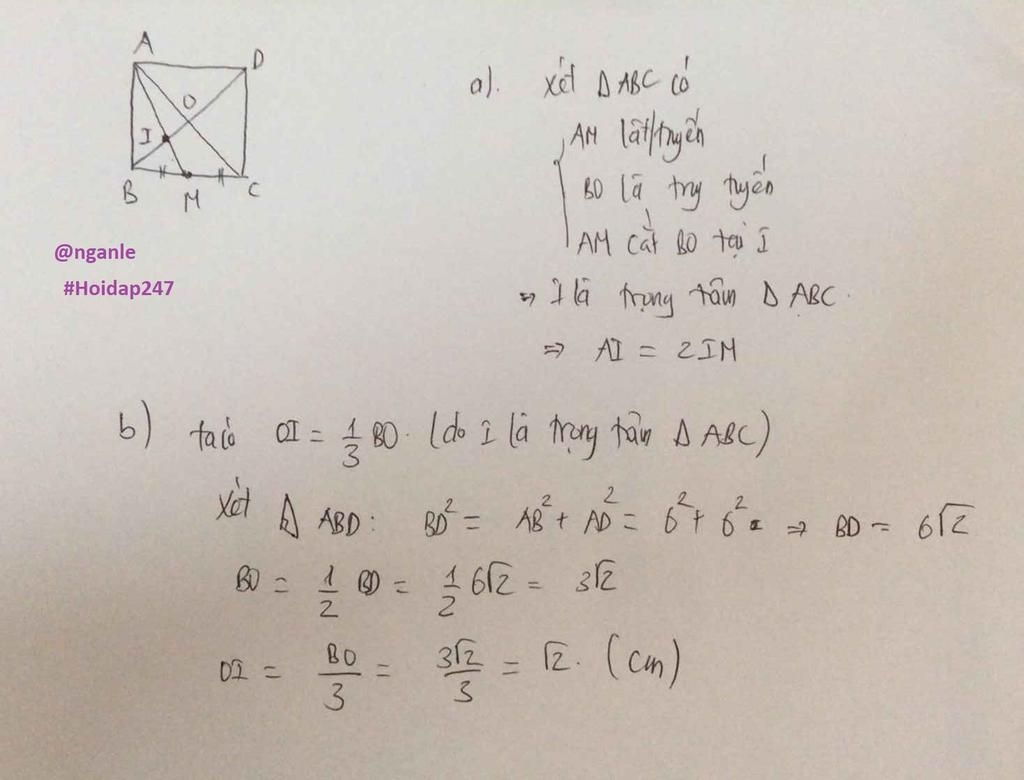 A
D
O
I
B
M
C
@nganle
#Hoidap247
a). Xét Δ ABC có
AM là t/tuyến
BO là trg tuyến
AM cắt BO tại I
⇒ I là trọng tâm Δ ABC.
⇒ AI = 2IM
b) ta có OI = 1/3 BO. (do I là trọng tâm Δ ABC)
Xét Δ ABD: BD² = AB² + AD² = 6² + 6² ⇒ BD = 6√2
BO = 1/2 BD = 1/2 6√2 = 3√2
OI = BO/3 = 3√2/3 = √2. (cm)